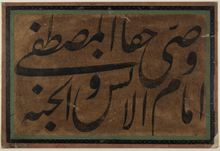 وصی حقا المصطفی
امام الانس و الجنه